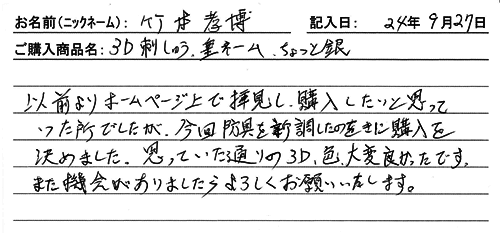 お名前(ニックネーム): 竹本孝博 記入日: 24年9月27日
ご購入商品名: 3D刺しゅう.垂ネーム.ちょっと銀
以前よりホームページ上で拝見し、購入したいと思って
いた所でしたが、今回防具を新調したのをきに購入を
決めました。思っていた通りの3D、色、大変良かったです。
また機会がありましたらよろしくお願いいたします。